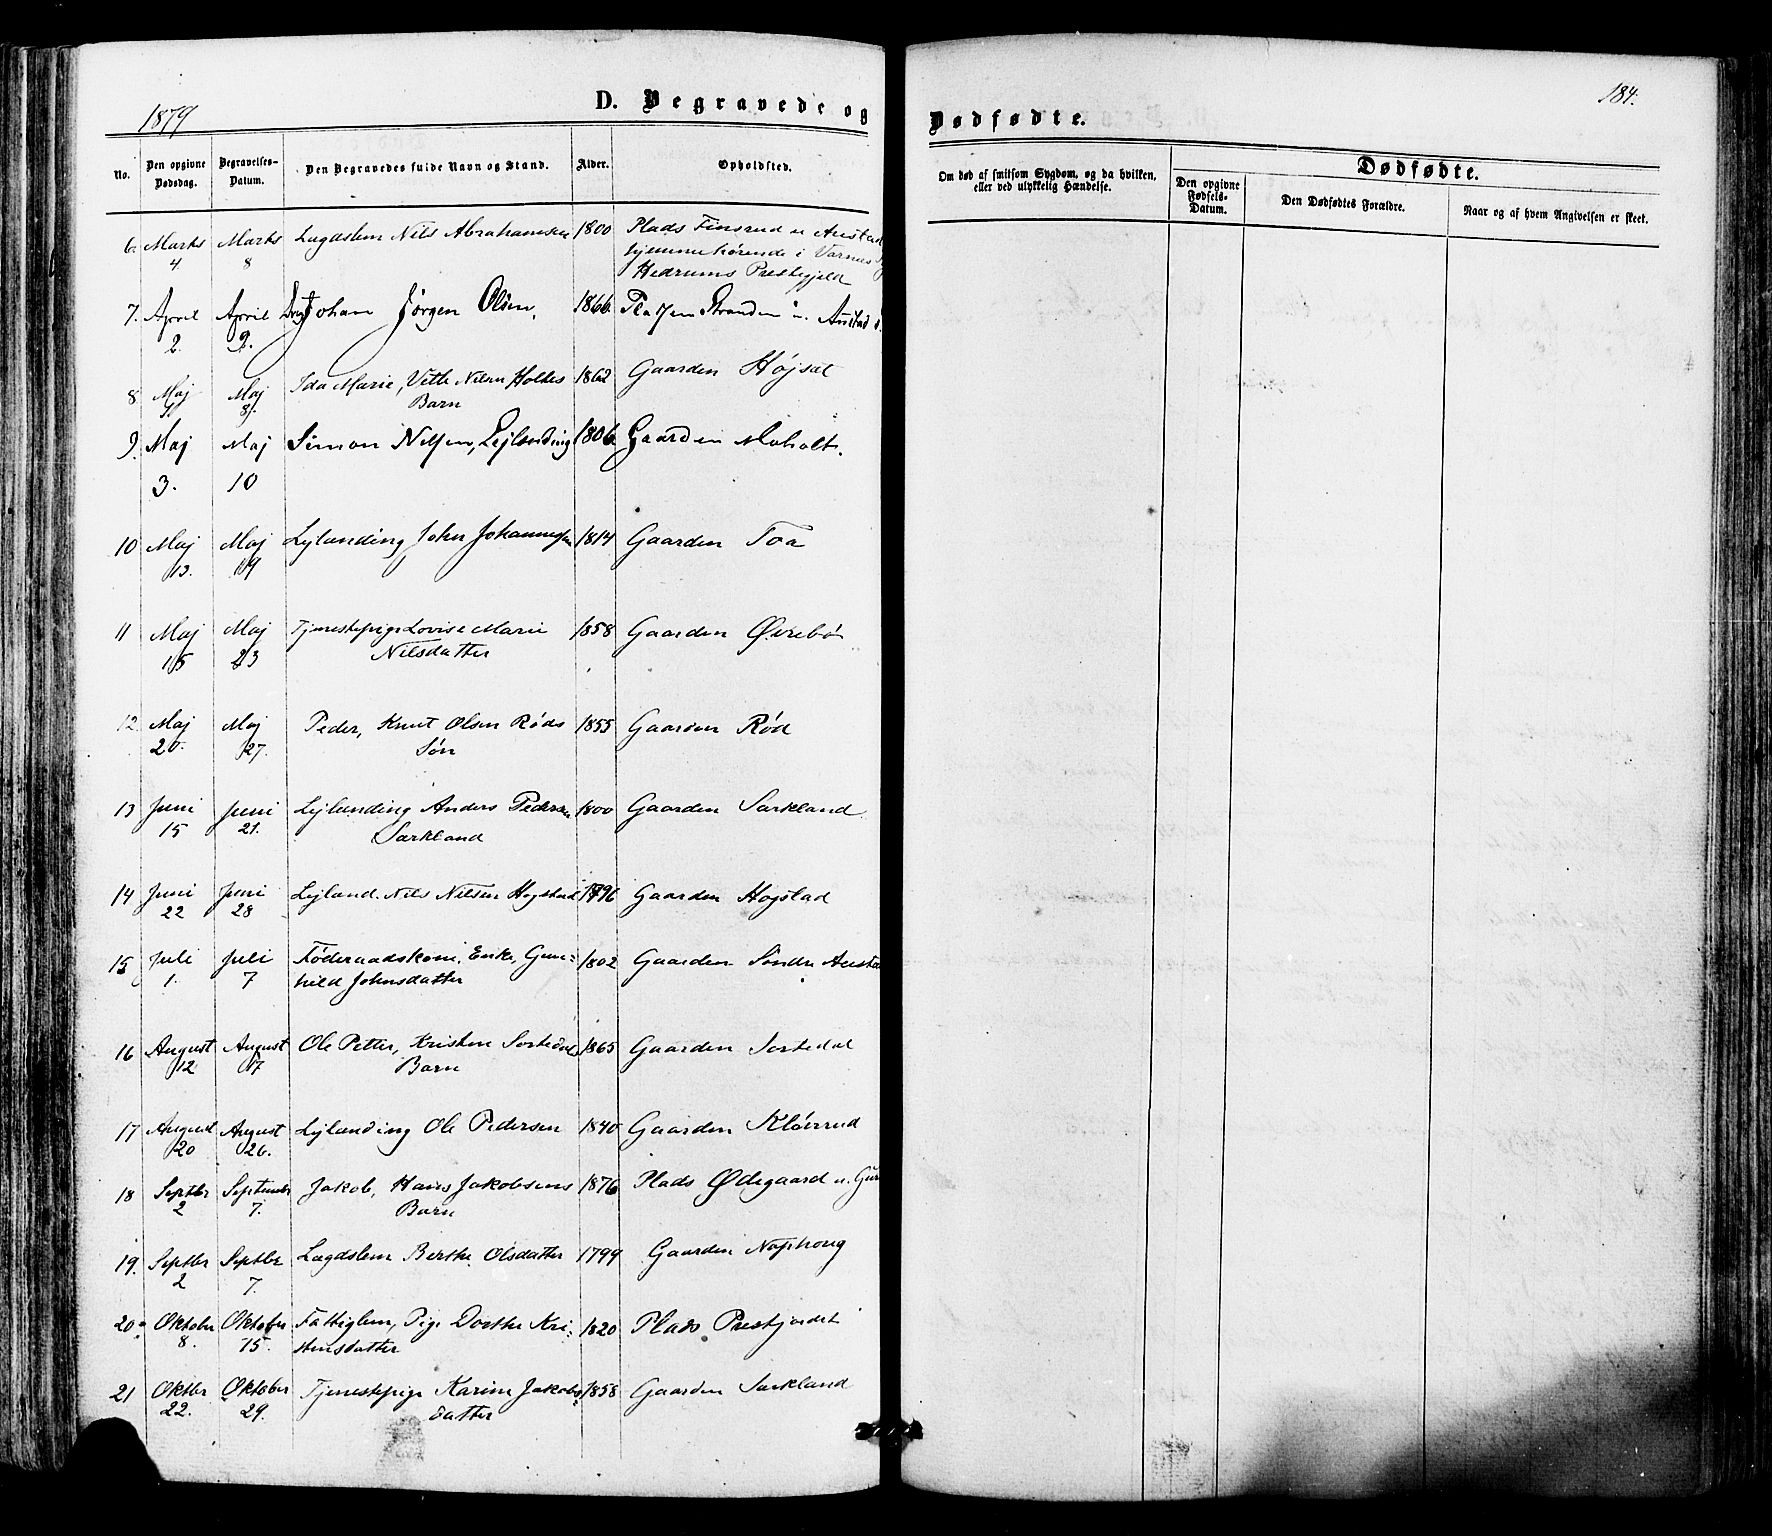 1879
D. Begravede og
No.
Den opgivne Dødsdag.
Begravelses-Datum.
Den Begravedes fulde Navn og Stand.
Alder.
Opholdsted.
6. Marts 4 Marts 8 Lægdslem Nils Abrahamsen 1800 Plads Finsrud u Anstad
hjemmehørende i Varnes
Hedrums Prestegjeld
7. April 2. April 9. Johan Jørgen Olsen, 1866. Pladsen Stranden u. Anstad
8. Maj Maj 8. Ida Marie, Vetle Nilsen Holtes 1862 Gaarden Højsæt
Barn
9. Maj 3. Maj 10 Simon Nilsen, Lejlænding 1806. Gaarden Moholt.
10 Maj 13. Maj 19 Lejlænding John Johannesen 1814 Gaarden Toa
11 Maj 15 Maj 23 Tjenestepige Lovise Marie 1858 Gaarden Øvrebø
Nilsdatter
12 Maj 20. Maj 27. Peder, Knut Olsen Røds 1855 Gaarden Rød
Søn
13 Juni 15 Juni 21. Lejlænding Anders Pedersen 1800 Gaarden Sarkland
Sarkland
14 Juni 22 Juni 28 Lejland. Nils Nilsen Hogstad 1796 Gaarden Hogstad
15 Juli 1. Juli 7 Føderaadskone, Enke, Gun- 1802 Gaarden Søndre Ansta
hild Johnsdatter
16 August 12 August 17 Ole Petter, Kristen Sortedals 1865 Gaarden Sortedal
Barn
17 August 20 August 26. Lejlænding Ole Pedersen 1840 Gaarden Kløvrud
18 Septbr 2 September 7. Jakob, Hans Jakobsens 1876 Plads Ødegaard u. Gur
Barn
19. Septbr 2 Septbr 7. Lægdslem Berthe Olsdatter 1799 Gaarden Naphoug
20 Oktober 8. Oktober 15. Fattiglem, Pige Dorthe Kri- 1820 Plads Prestjordet
stensdatter
21 Oktbr 22. Oktober 29. Tjenestepige Karine Jakobs- 1858 Gaarden Sarkland
datter
184.
Dødfødte.
Om død af smitsom Sygdom, og da hvilken,
eller ved ulykkelig Hændelse.
Dødfødte.
Den opgivne Fødsels-Datum.
Den Dødfødtes Forældre.
Naar og af hvem Angivelsen er skeet.